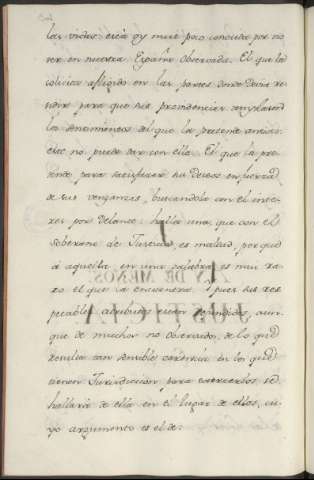 las vidas: está oy mui poco conocida por no
ser en nuestra España observada. El que la
solicita afligido en las partes donde devia re
para que sus providencias
los del que la presente
no puede dar con ella. El que la pre
tende para satisfacer sus deseos
de sus venganzas, buscandola con el inte
res por delante: halla una, que con el
sobrenombre de Justicia, es maldad, porque
á aquella en una palabra, es mui ra
ro el que la encuentra; pues sus res
petables atributos estan aun
que de muchos no observados, de lo que
resulta tan sensible carencia en los que
tienen Jurisdiccion para exercerlos, se
hallará de ella en el lugar de ellos, cu
yo argumento es el de: